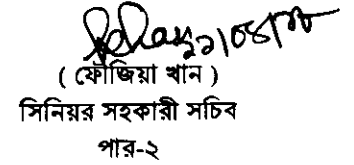 ( ফৌজিয়া খান )
সিনিয়র সহকারী সচিব
পার-২